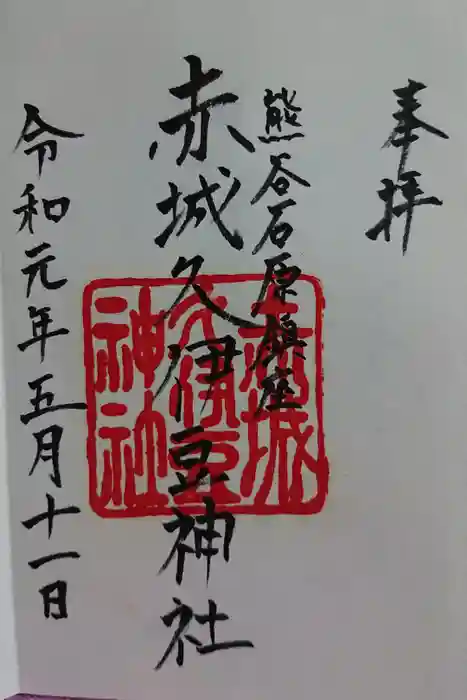 奉拝
熊谷石原鎮座
赤城久伊豆神社
令和元年五月十一日
赤城
久伊豆
神社